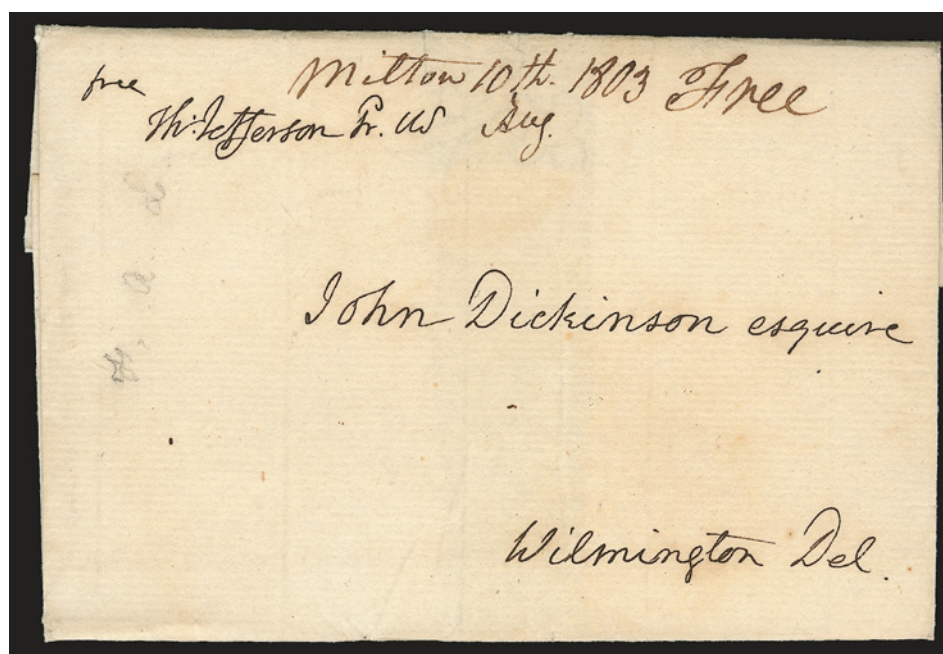 free
Milton 10th. 1803 Free
Th: Jefferson Pr. US Aug.
John Dickinson esquire
Wilmington Del.